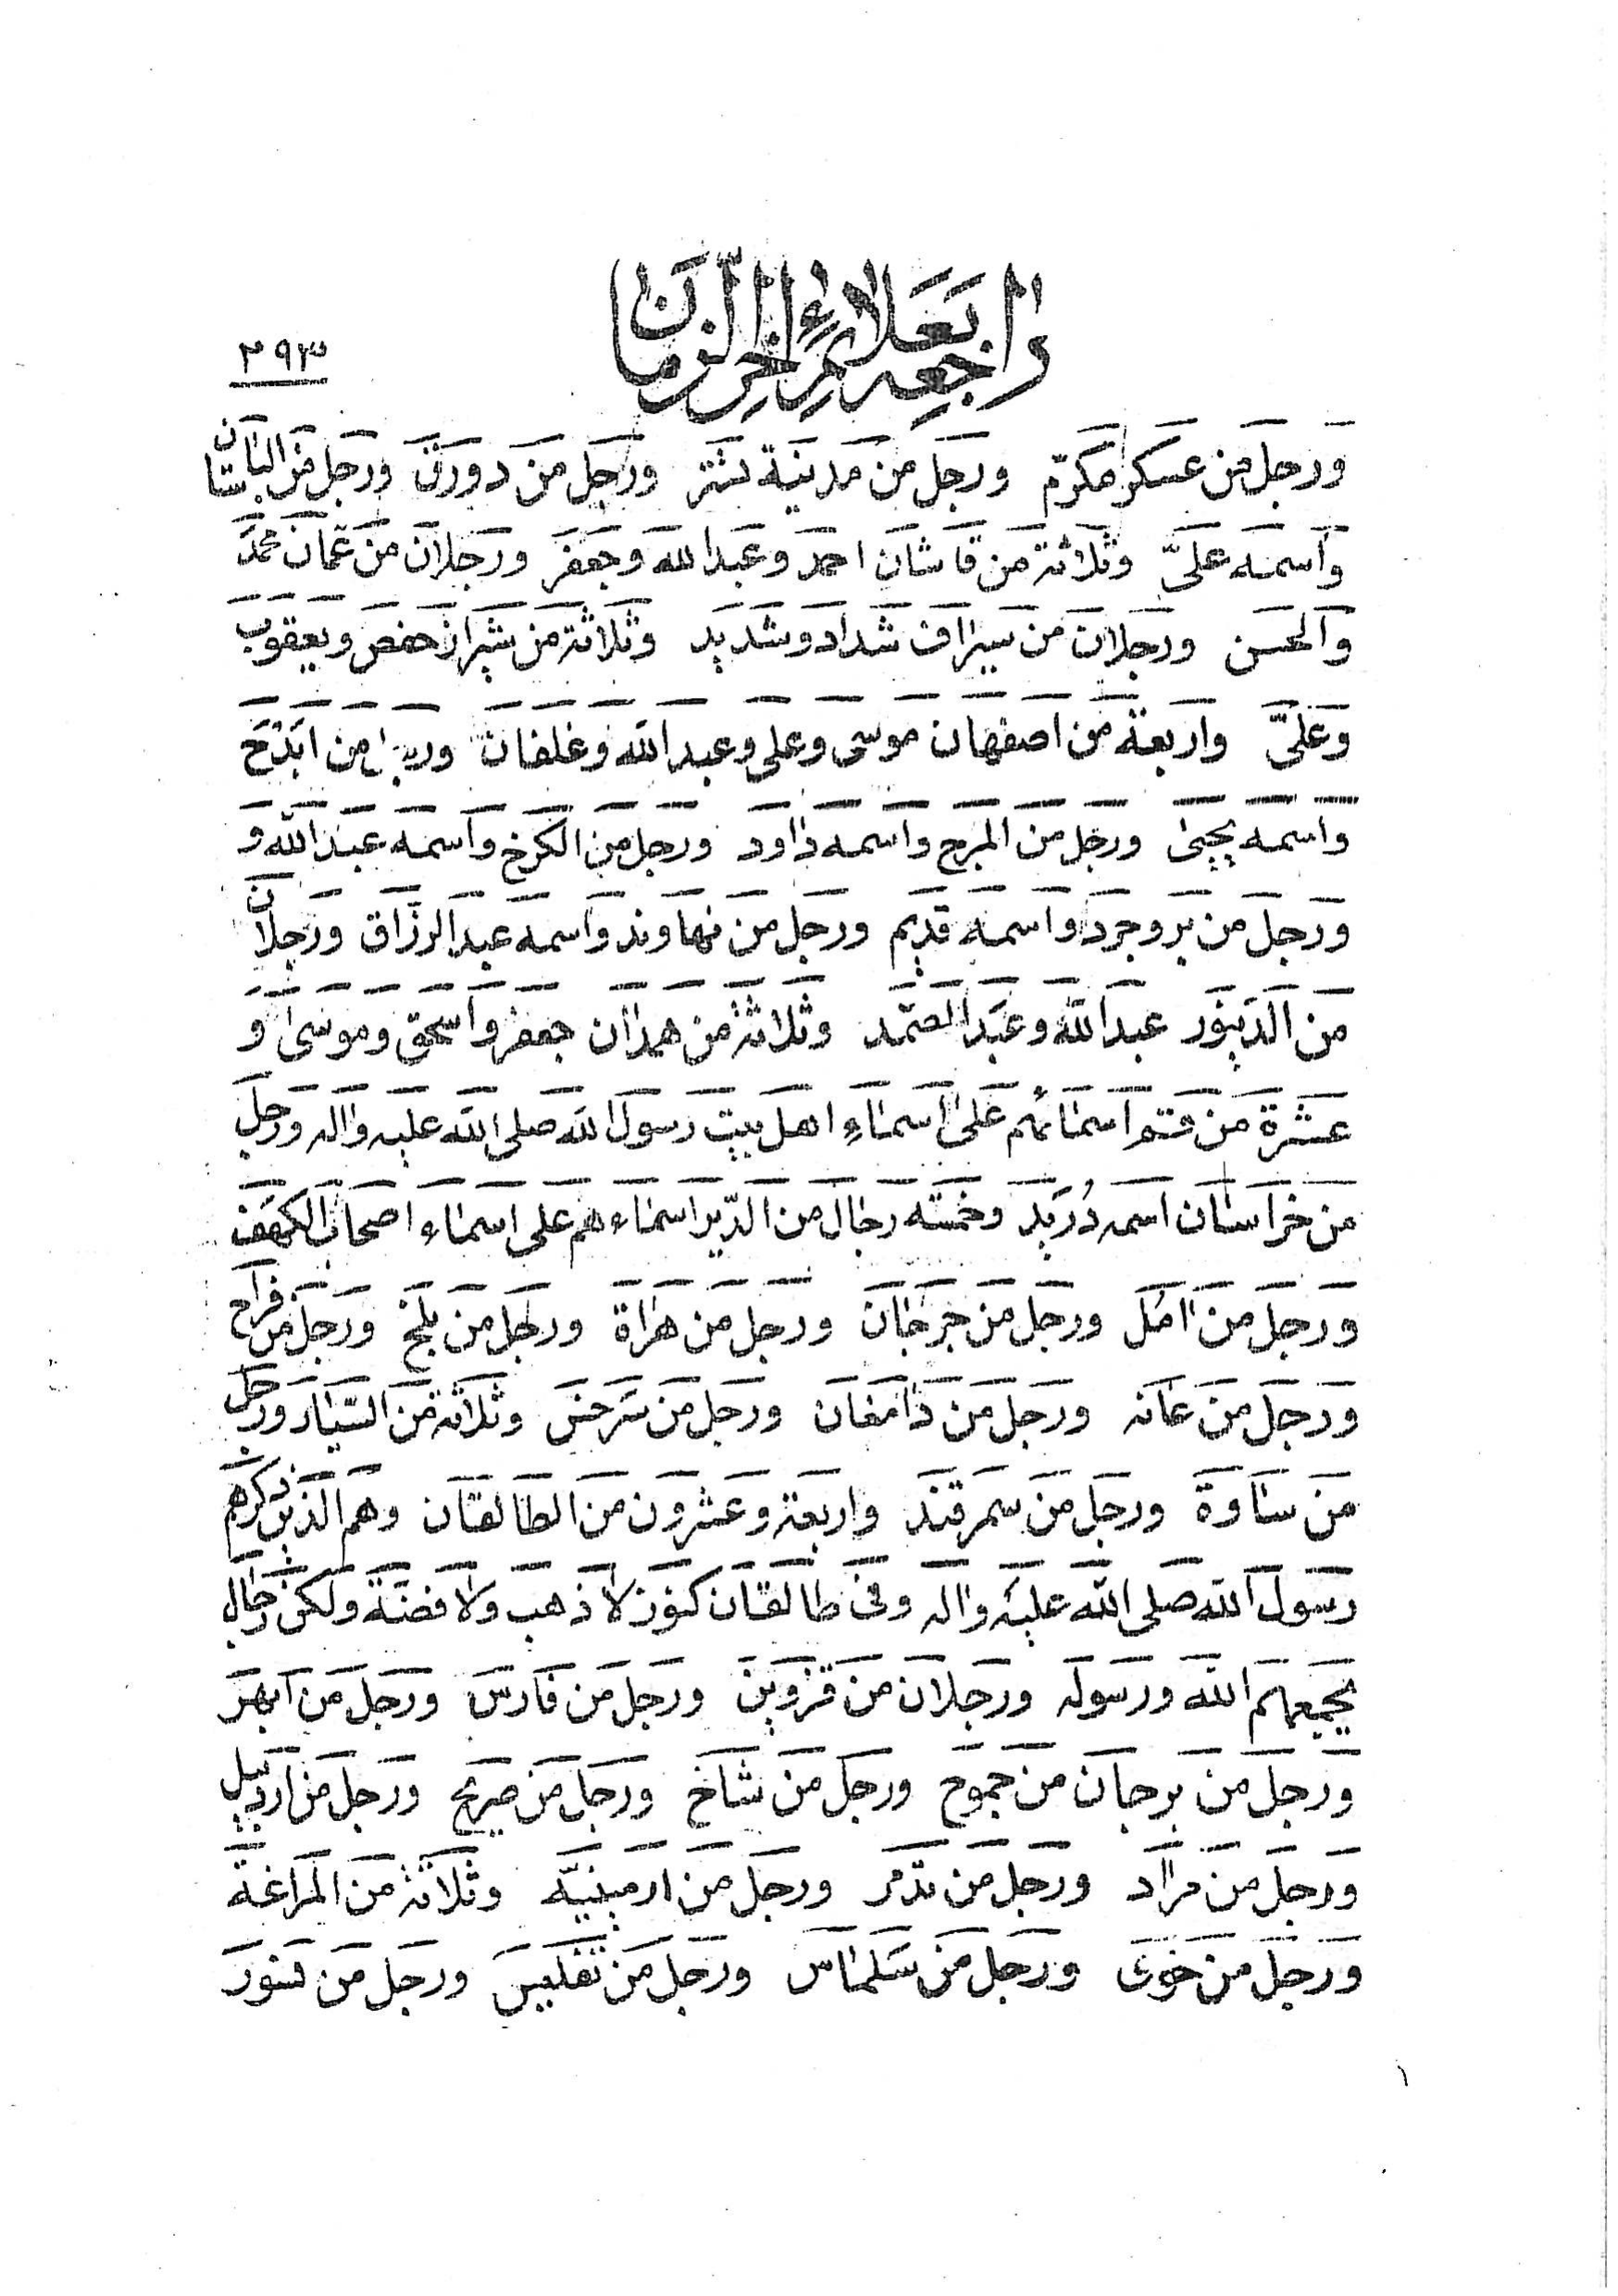 راجعه بعلائم اخر الزمان
۲۹۳
ورجل من عسكر مكرّم ورجل من مدينة تشتر ورجل من دورق ورجل من الباستان
واسمه علىّ وثلاثة من قاشان احمد وعبدالله وجعفر ورجلان من عمّان محمّد
والحسن ورجلان من سيراف شداد وشديد وثلاثة من شيراز حفص ويعقوب
وعلىّ واربعة من اصفهان موسى وعلى وعبدالله وغلفان ورجل من ابدح
واسمه يحيى ورجل من المرج واسمه داود ورجل من الكرخ واسمه عبدالله و
ورجل من بروجرد واسمه قديم ورجل من نهاوند واسمه عبدالرزّاق ورجلان
من الدينور عبدالله وعبدالصّمد وثلاثة من همدان جعفر واسحق وموسى و
عشرة من قم اسمائهم على اسماء اهل بيت رسول الله صلى الله عليه واله ورجل
من خراسان اسمه دُريد وخمسه رجال من الدّير اسماءهم على اسماء اصحاب الكهف
ورجل من امل ورجل من جرجان ورجل من هراة ورجل من بلخ ورجل من قراح
ورجل من عانه ورجل من دامغان ورجل من سرخس وثلاثة من السّيار ورجل
من ساوة ورجل من سمرقند واربعة وعشرون من الطالقان وهم الذين ذكرهم
رسول الله صلى الله عليه واله وفى طالقان كنوز لا ذهب ولا فضة ولكن رجال
يجمعهم الله ورسوله ورجلان من قزوين ورجل من فارس ورجل من ابهر
ورجل من برجان من جموح ورجل من شاخ ورجل من صريح ورجل من اردبيل
ورجل من مراد ورجل من تدمر ورجل من ارمينيّه وثلاثة من المراغة
ورجل من خوى ورجل من سلماس ورجل من تفليس ورجل من نسور